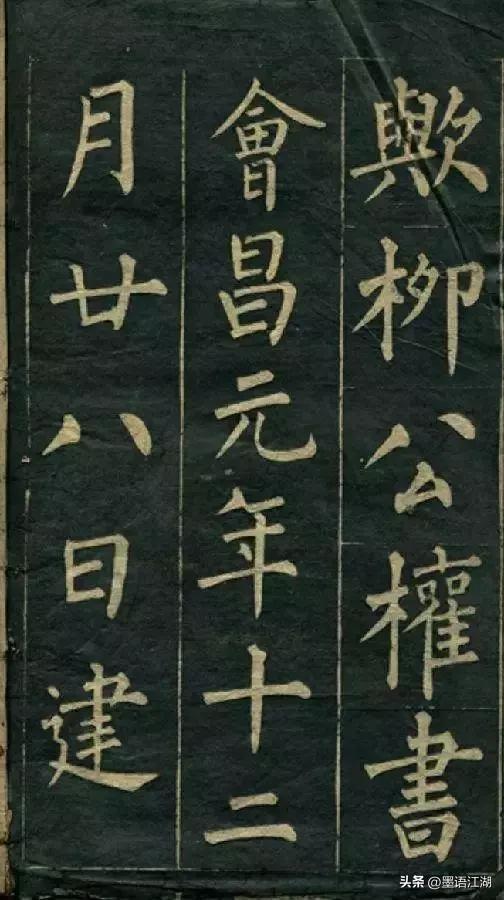 歟柳公權書
會昌元年十二
月廿八日建
头条 @墨语江湖